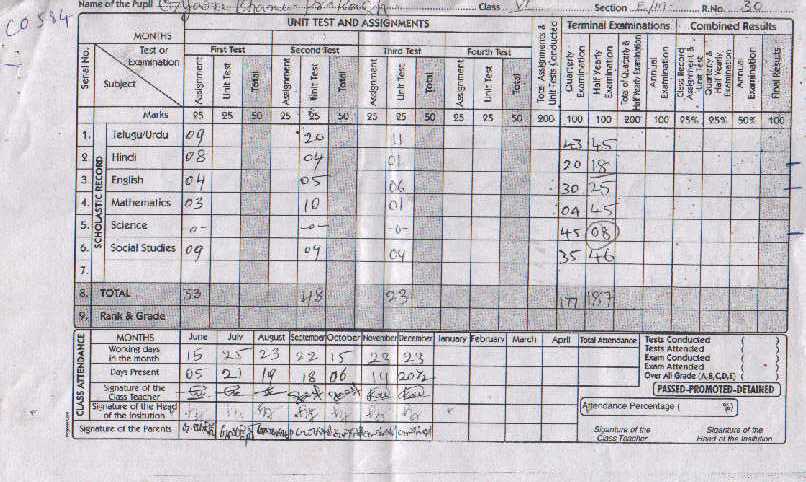 CO 584
Name of the Pupil Class VI Section E/M R.No. 30
UNIT TEST AND ASSIGNMENTS Terminal Examinations Combined Results
MONTHS
Serial No. Test or Examination Subject First Test Second Test Third Test Fourth Test Total Assignments & Unit Tests Conducted Quarterly Examination Half Yearly Examination Total of Quartrly & Half Yearly Examination Annual Examination Class Record Assignment & Unit Test Quarterly & Half Yearly Examination Annual Examination Final Results
Assignment Unit Test Total Assignment Unit Test Total Assignment Unit Test Total Assignment Unit Test Total
Marks 25 25 50 25 25 50 25 25 50 25 25 50 200 100 100 200 100 25% 25% 50% 100
SCHOLASTIC RECORD
1. Telugu/Urdu 09 20 11 43 45
2 Hindi 08 04 01 20 18
3. English 04 05 06 30 25
4. Mathematics 03 10 01 04 45
5. Science -0- -0- 45 08
6. Social Studies 09 09 04 35 46
7.
8. TOTAL 33 48 23 177 187
9. Rank & Grade
CLASS ATTENDANCE
MONTHS June July August September October November December January February March April Total Attendance
Working days in the month 15 25 23 22 15 23 23
Days Present 05 21 19 18 06 19 20½
Signature of the Class Teacher
Signature of the Head of the Institution
Signature of the Parents
Tests Conducted ( )
Tests Attended ( )
Exam Conducted ( )
Exam Attended ( )
Over All Grade (A,B,C,D,E) ( )
PASSED-PROMOTED-DETAINED
Attendance Percentage ( %)
Signature of the Class Teacher Signature of the Head of the Institution